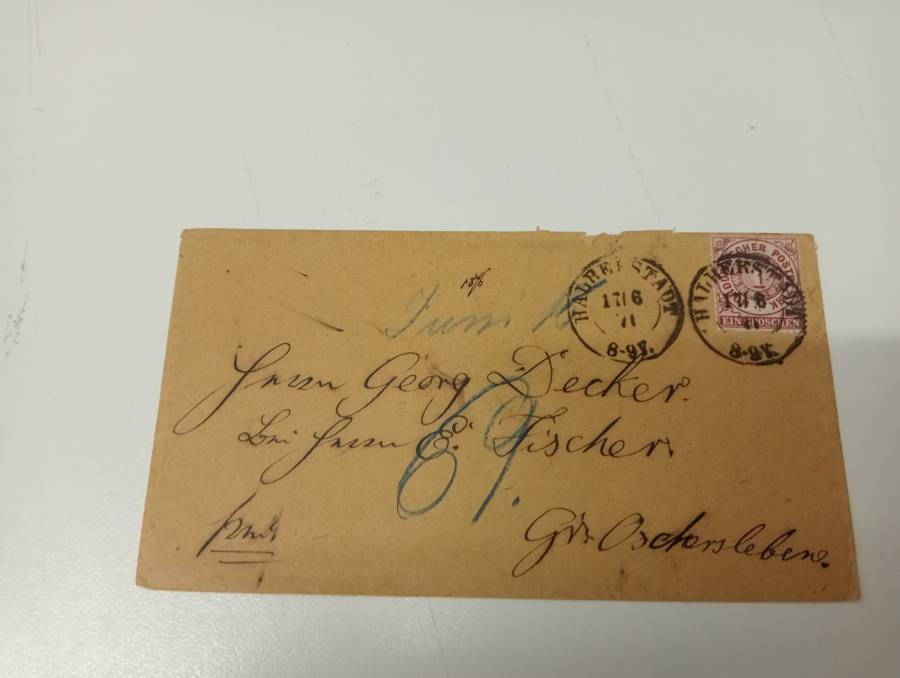 HALBERSTADT
17 6
71
8-9V.
HALBERSTADT
17 6
71
8-9V.
NORDDEUTSCHER POSTBEZIRK
1
EIN GROSCHEN
Juni
Herrn Georg Decker.
bei Herrn E. Fischer.
Oschersleben.